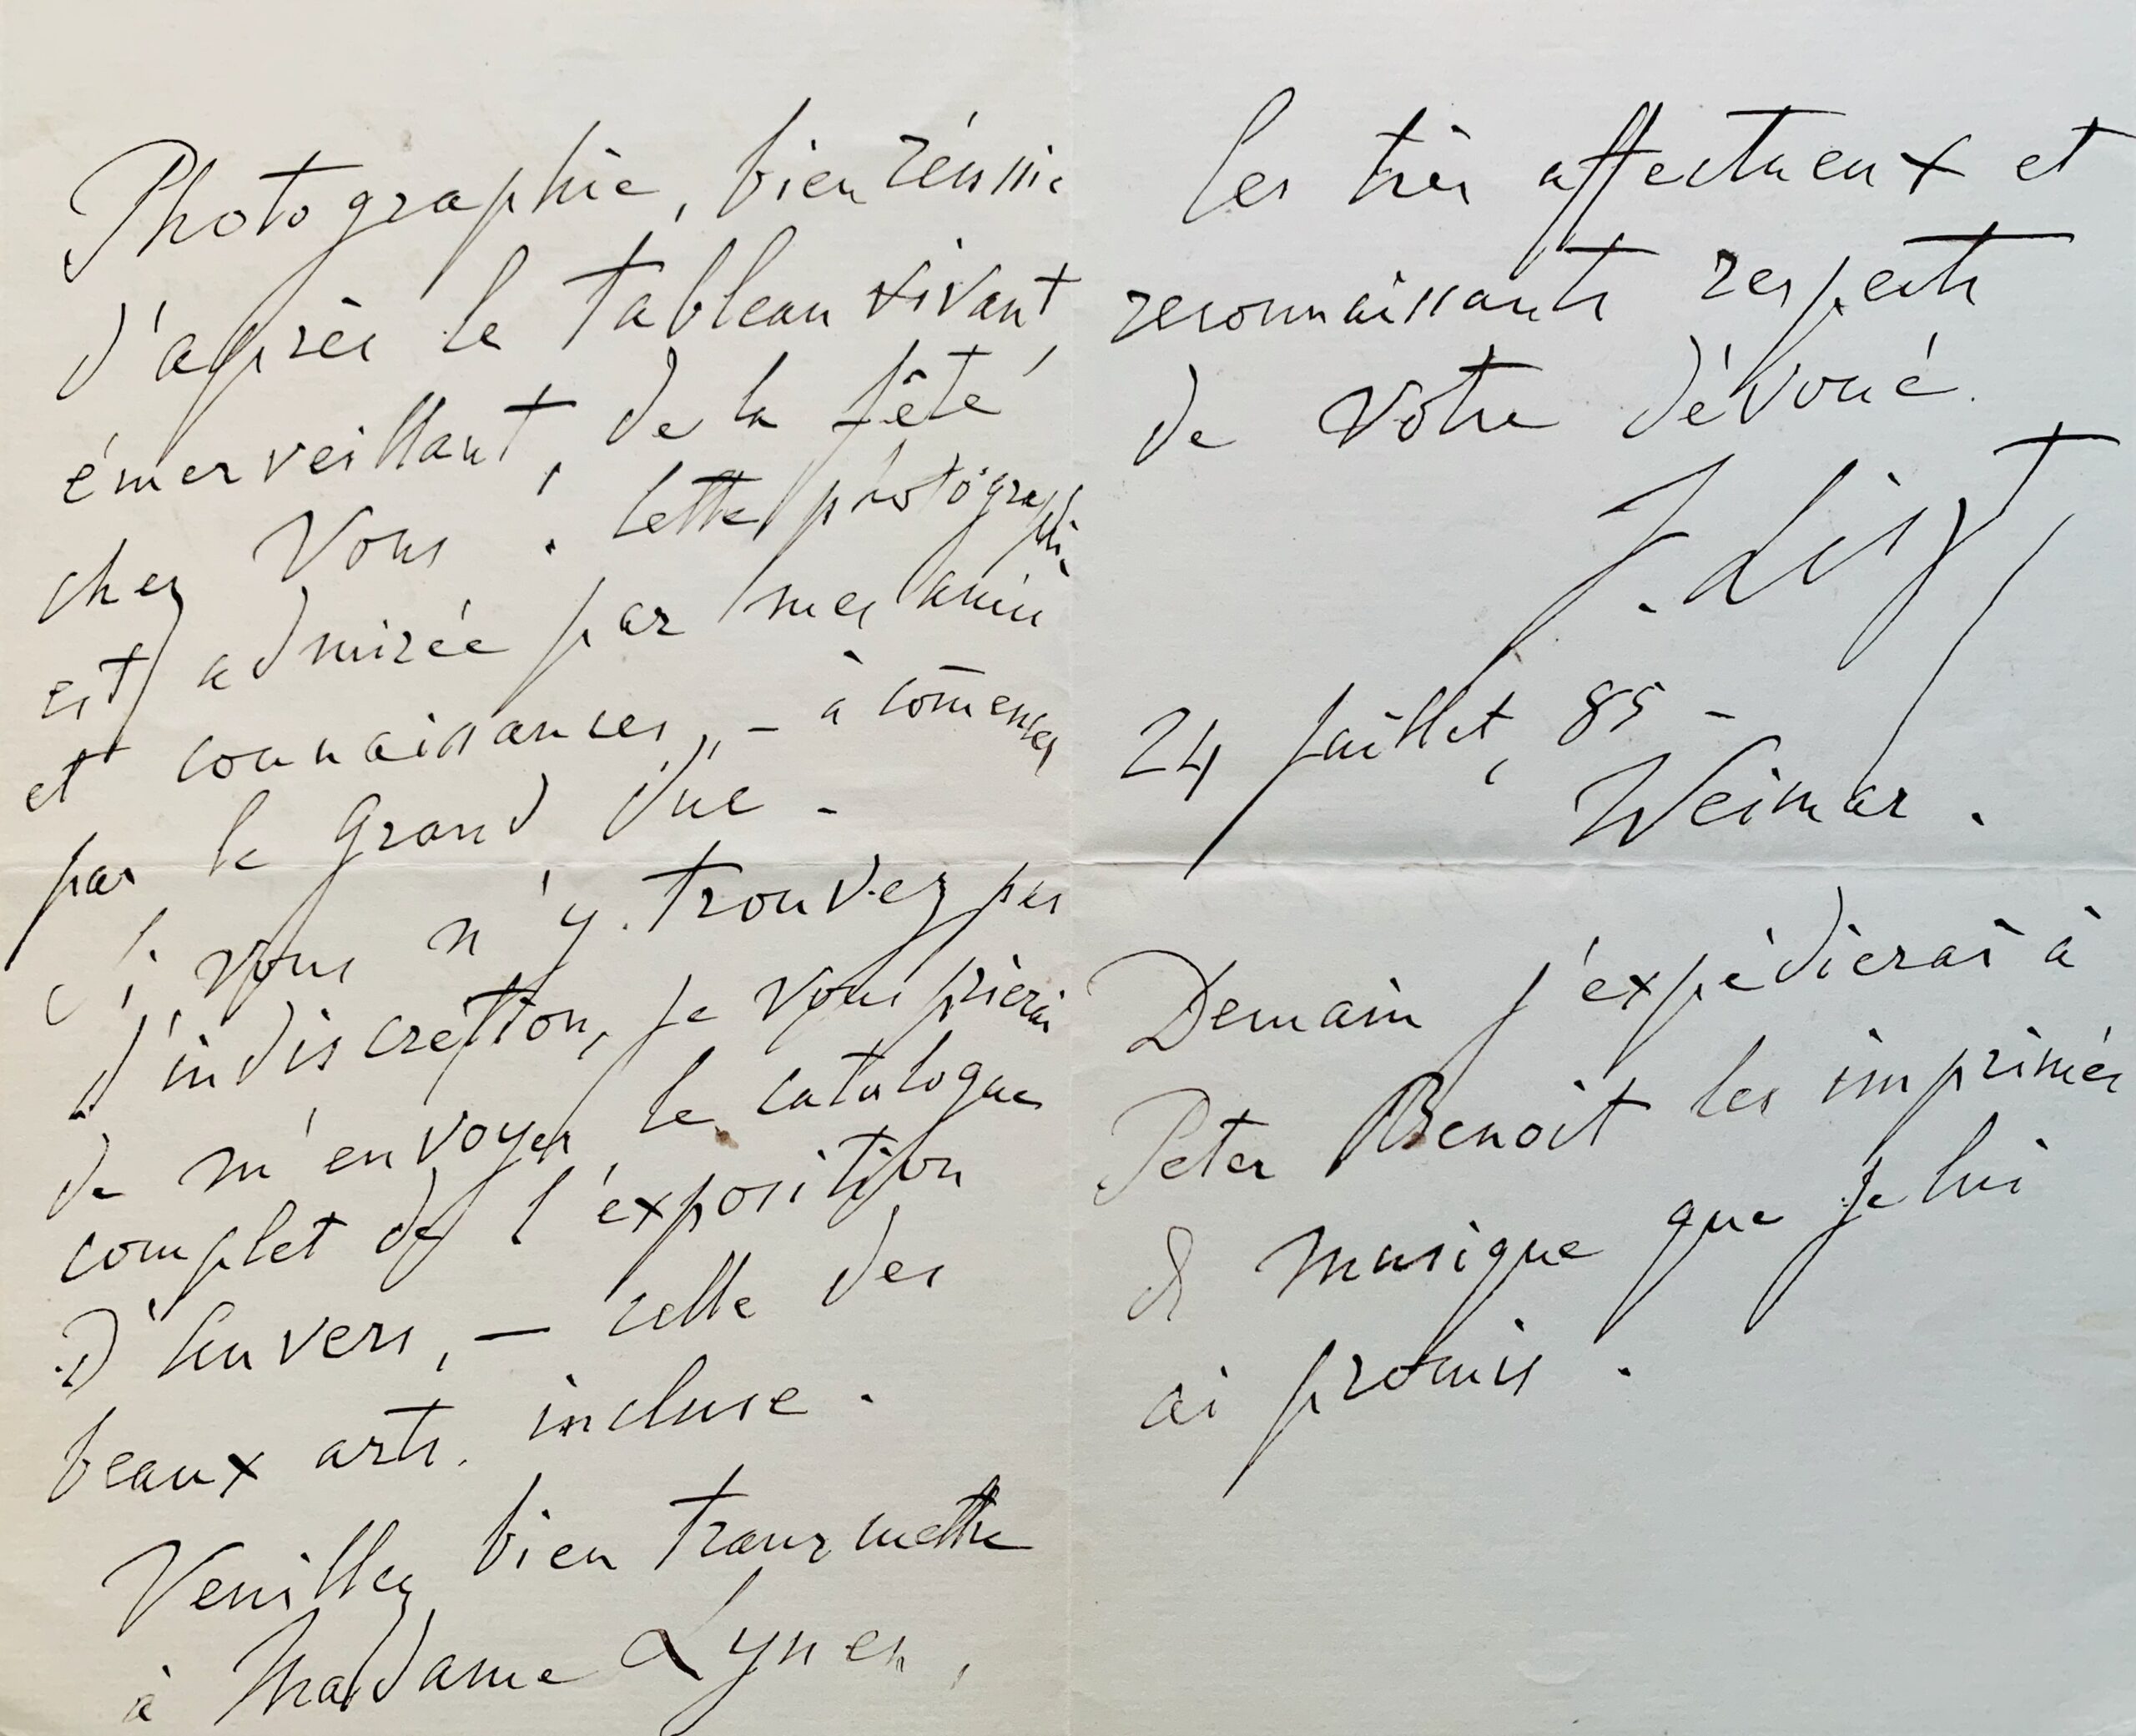 Photographie, bien réussie
d'après le tableau vivant,
émerveillant, de la fête
chez Vous. Cette photographie
est admirée par mes amis
et connaissances, – à comencer
par le Grand Duc –
Si vous n'y trouvez pas
d'indiscrétion, je vous prierai
de m'envoyer le catalogue
complet de l'exposition
d'Anvers, – celle des
beaux arts incluse.
Veuillez bien transmettre
à Madame Lynen,
les très affectueux et
reconnaissants respects
de votre dévoué.
F. Liszt
24 Juillet, 85 –
Weimar.
Demain j'expédierai à
Peter Benoit les imprimés
de musique que je lui
ai promis.